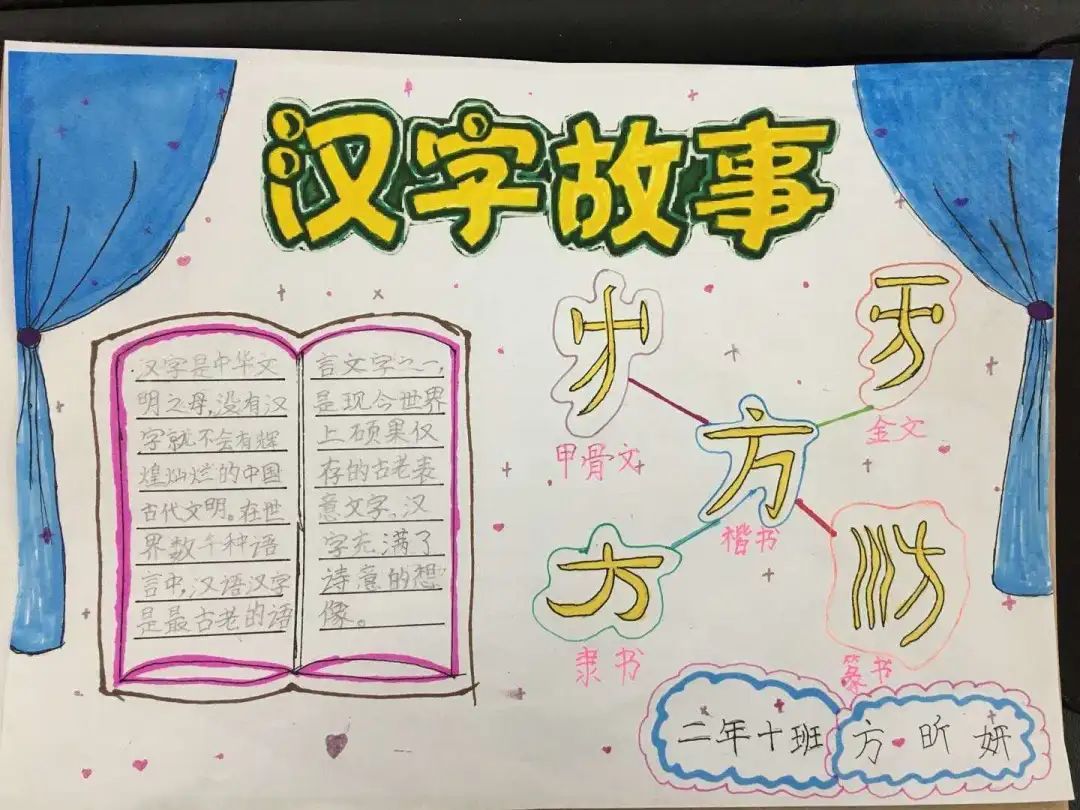 汉字故事
汉字是中华文
明之母,没有汉
字就不会有辉
煌灿烂的中国
古代文明。在世
界数千种语
言中,汉语汉字
是最古老的语
言文字之一,
是现今世界
上硕果仅
存的古老表
意文字。汉
字充满了
诗意的想
像。
甲骨文
金文
方
楷书
隶书
篆书
二年十班
方昕妍